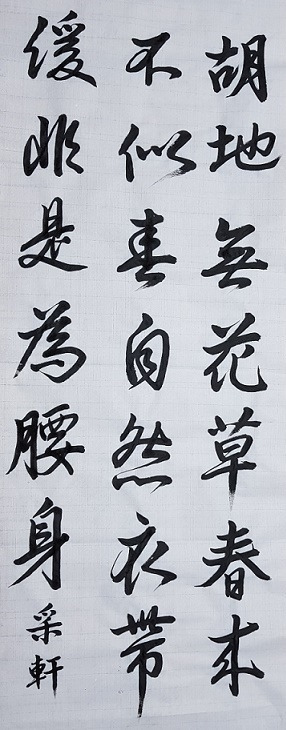 胡地無花草春来
不似春自然衣帶
緩非是為腰身
采軒